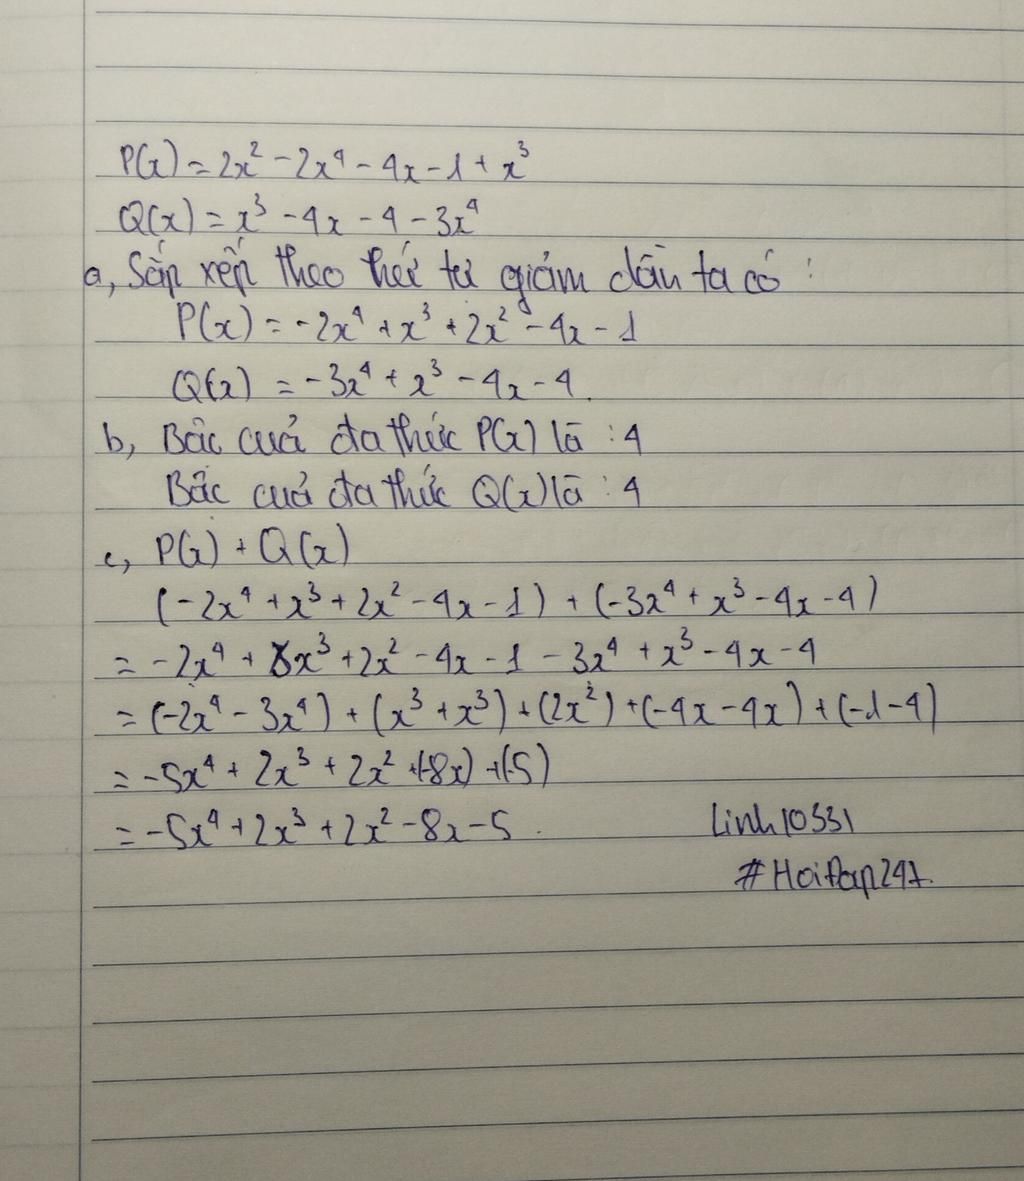 P(x) = 2x² - 2x⁴ - 4x - 1 + x³
Q(x) = x³ - 4x - 4 - 3x⁴
a, Sắp xếp theo thứ tự giảm dần ta có :
P(x) = -2x⁴ + x³ + 2x² - 4x - 1
Q(x) = -3x⁴ + x³ - 4x - 4.
b, Bậc cuả đa thức P(x) là : 4
Bậc cuả đa thức Q(x) là : 4
c, P(x) + Q(x)
(-2x⁴ + x³ + 2x² - 4x - 1) + (-3x⁴ + x³ - 4x - 4)
= -2x⁴ + x³ + 2x² - 4x - 1 - 3x⁴ + x³ - 4x - 4
= (-2x⁴ - 3x⁴) + (x³ + x³) + (2x²) + (-4x - 4x) + (-1 - 4)
= -5x⁴ + 2x³ + 2x² + (-8x) + (-5)
= -5x⁴ + 2x³ + 2x² - 8x - 5.
Linh10331
#Hoiđap247.